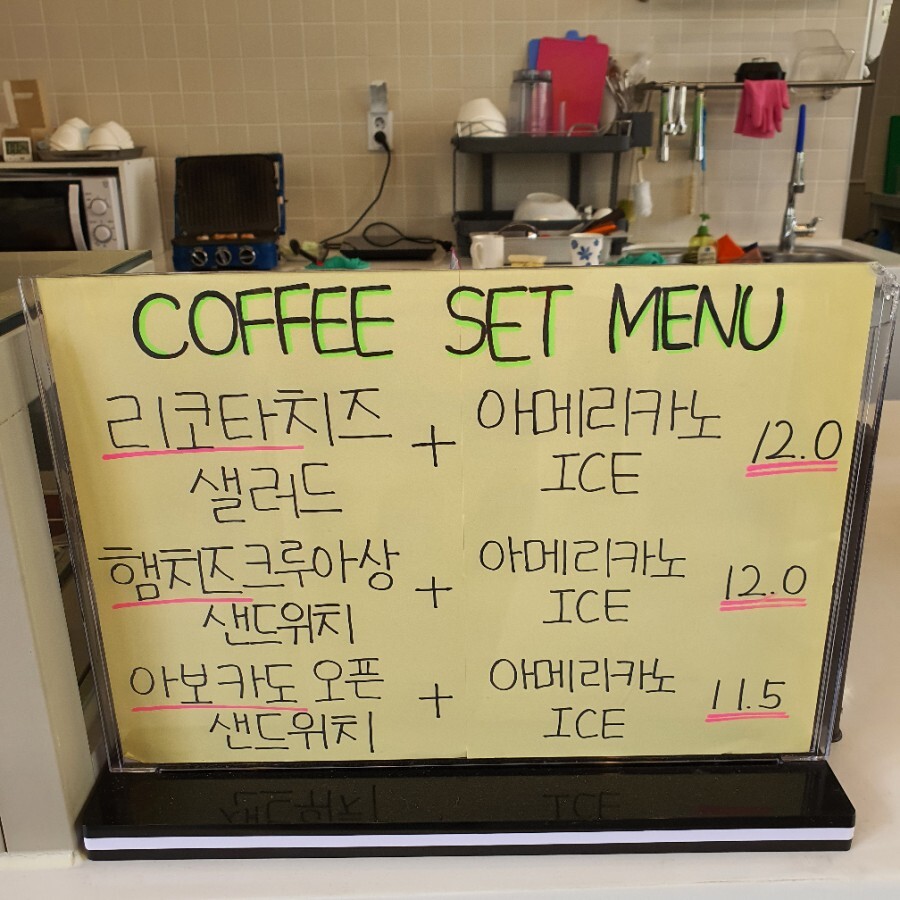 COFFEE SET MENU
리코타치즈 + 아메리카노 12.0
샐러드 ICE
햄치즈크루아상 + 아메리카노 12.0
샌드위치 ICE
아보카도 오픈 + 아메리카노 11.5
샌드위치 ICE